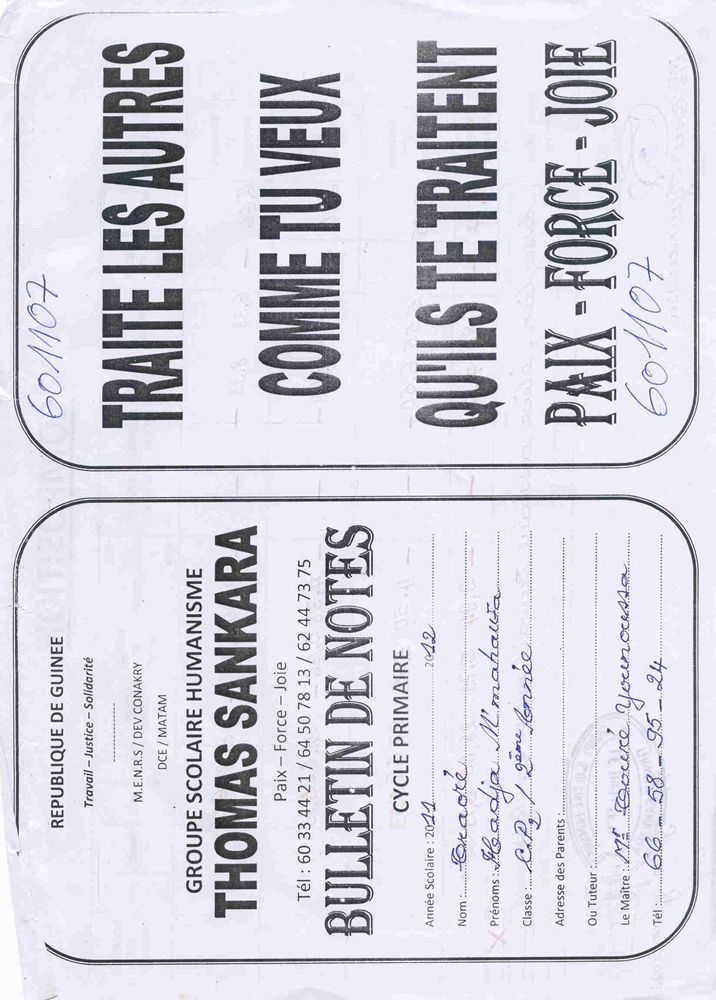 601107
TRAITE LES AUTRES
COMME TU VEUX
QU'ILS TE TRAITENT
PAIX - FORCE - JOIE
601107
REPUBLIQUE DE GUINEE
Travail – Justice – Solidarité
M.E.N.R.S / DEV CONAKRY
DCE / MATAM
GROUPE SCOLAIRE HUMANISME
THOMAS SANKARA
Paix – Force – Joie
Tél : 60 33 44 21 / 64 50 78 13 / 62 44 73 75
BULLETIN DE NOTES
CYCLE PRIMAIRE
Année Scolaire : 2011 2012
Nom : Traoré
Prénoms : Hadja M'mahawa
Classe : C.P2 / 2ème Année
Adresse des Parents :
Ou Tuteur :
Le Maître : Mr Touré Younoussa
Tél : 66-58-95-24